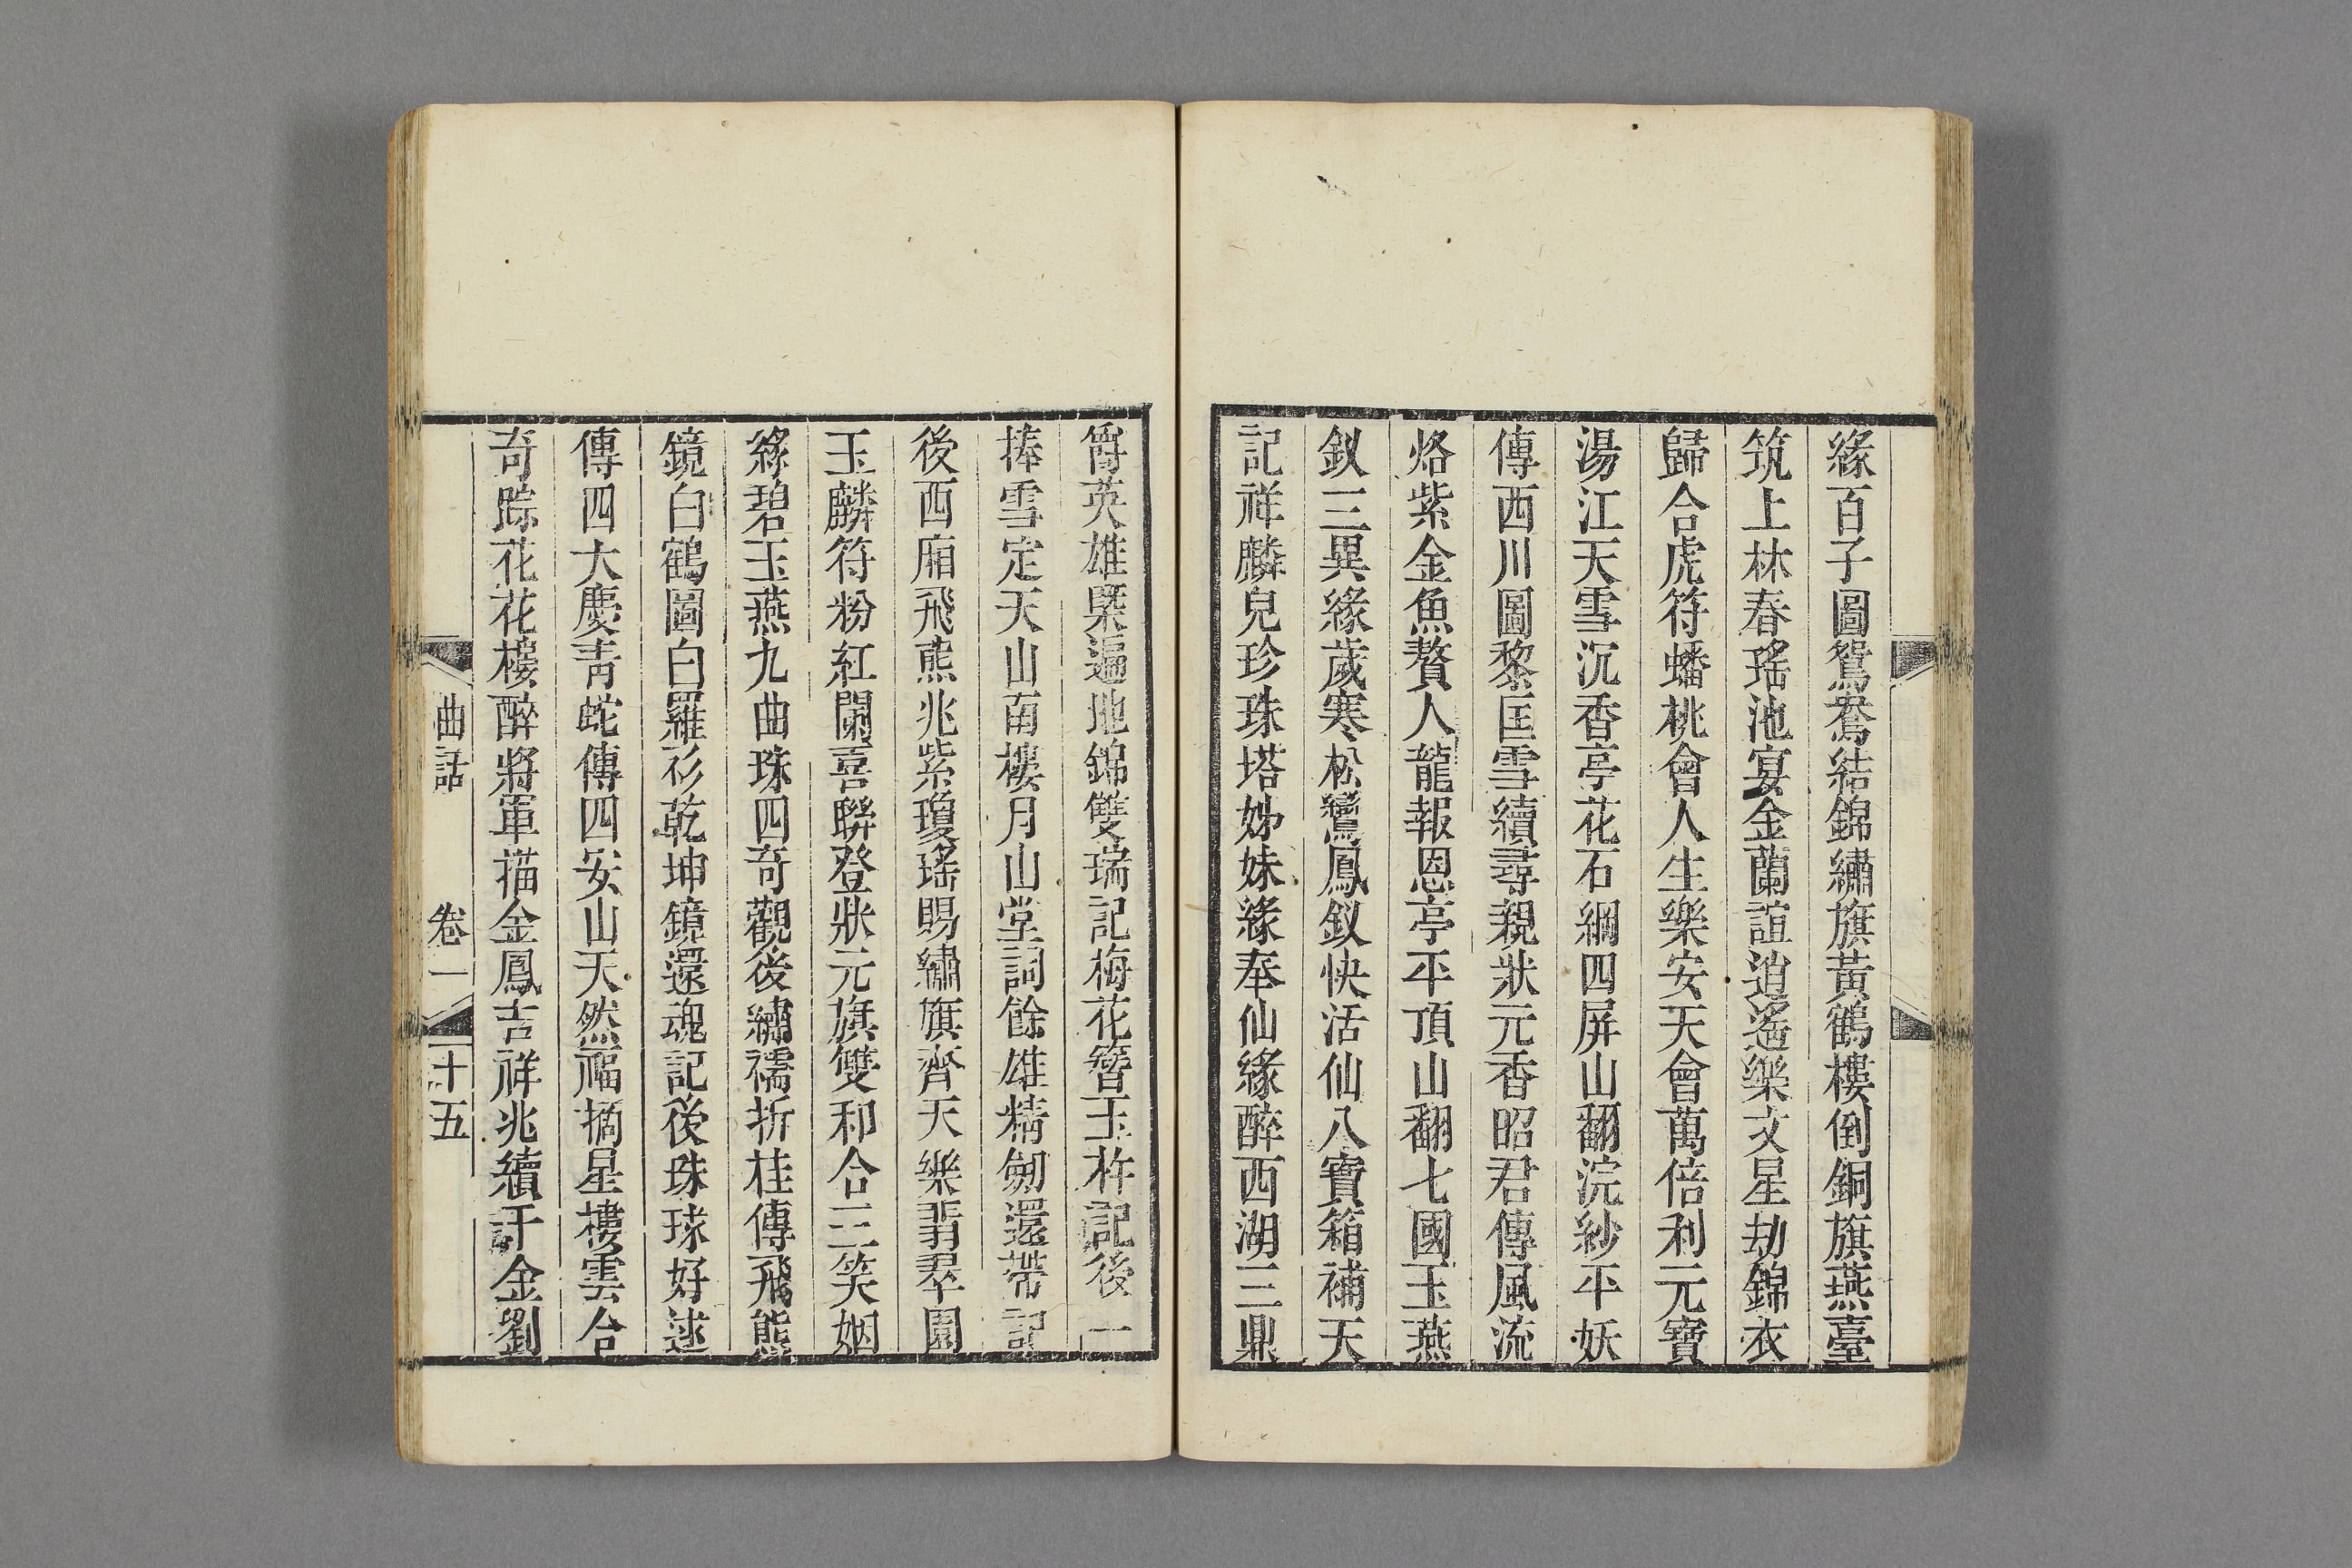 緣百子圖鴛鴦結錦繡旗黃鶴樓倒銅旗燕臺
筑上林春瑤池宴金蘭誼逍遙樂文星劫錦衣
歸合虎符蟠桃會人生樂安天會萬倍利元寶
湯江天雪沉香亭花石綱四屏山翻浣紗平妖
傳西川圖黎匡雪續尋親狀元香昭君傳風流
烙紫金魚贅人龍報恩亭平頂山翻七國玉燕
釵三異緣歲寒松鸞鳳釵快活仙八寶箱補天
記祥麟兒珍珠塔姊妹緣奉仙緣醉西湖三鼎
爵英雄槩遍地錦雙瑞記梅花簪玉杵記後一
捧雪定天山南樓月山堂詞餘雄精劒還帶記
後西廂飛熊兆紫瓊瑤賜繡旗齊天樂翡翠園
玉麟符粉紅闌喜聯登狀元旗雙和合三笑姻
緣碧玉燕九曲珠四奇觀後繡襦折桂傳飛熊
鏡白鶴圖白羅衫乾坤鏡還魂記後珠球好逑
傳四大慶青蛇傳四安山天然福摘星樓雲合
奇踪花花樓醉將軍描金鳳吉祥兆續千金劉
曲話 卷一 十五